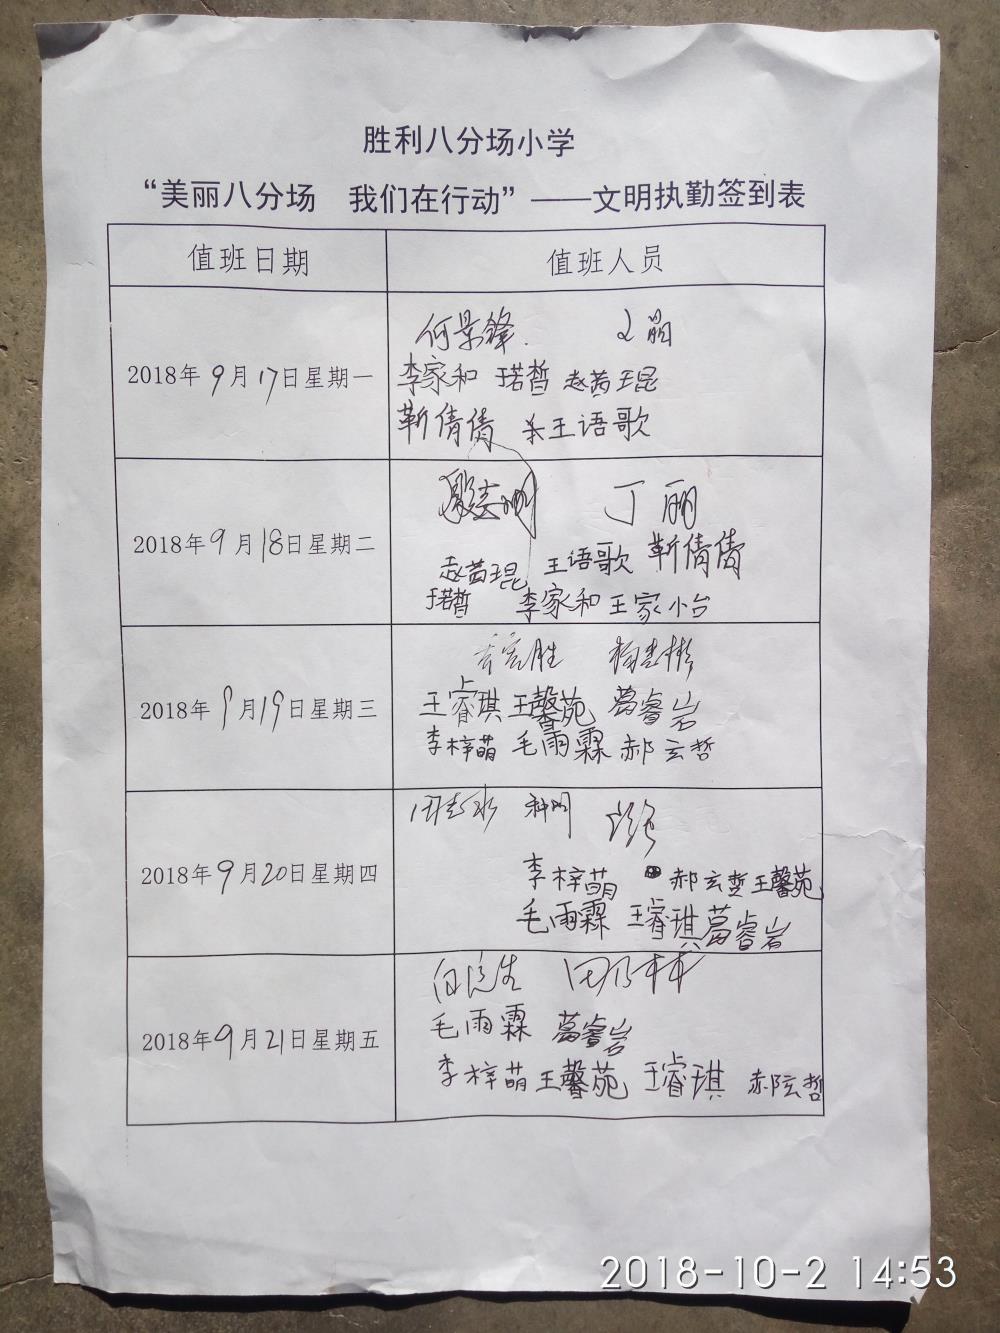 胜利八分场小学
“美丽八分场 我们在行动”——文明执勤签到表
值班日期 值班人员
何景锋
2018年9月17日星期一 李家和 于若哲 赵茜琨
靳倩倩 王语歌
丁丽
2018年9月18日星期二 赵茜琨 王语歌 靳倩倩
于若哲 李家和 王家小台
2018年9月19日星期三 王睿琪 王馨苑 葛睿岩
李梓萌 毛雨霖 郝玄哲
2018年9月20日星期四 李梓萌 郝玄哲 王馨苑
毛雨霖 王睿琪 葛睿岩
毛雨霖 葛睿岩
2018年9月21日星期五
李梓萌 王馨苑 王睿琪 郝玄哲
2018-10-2 14:53